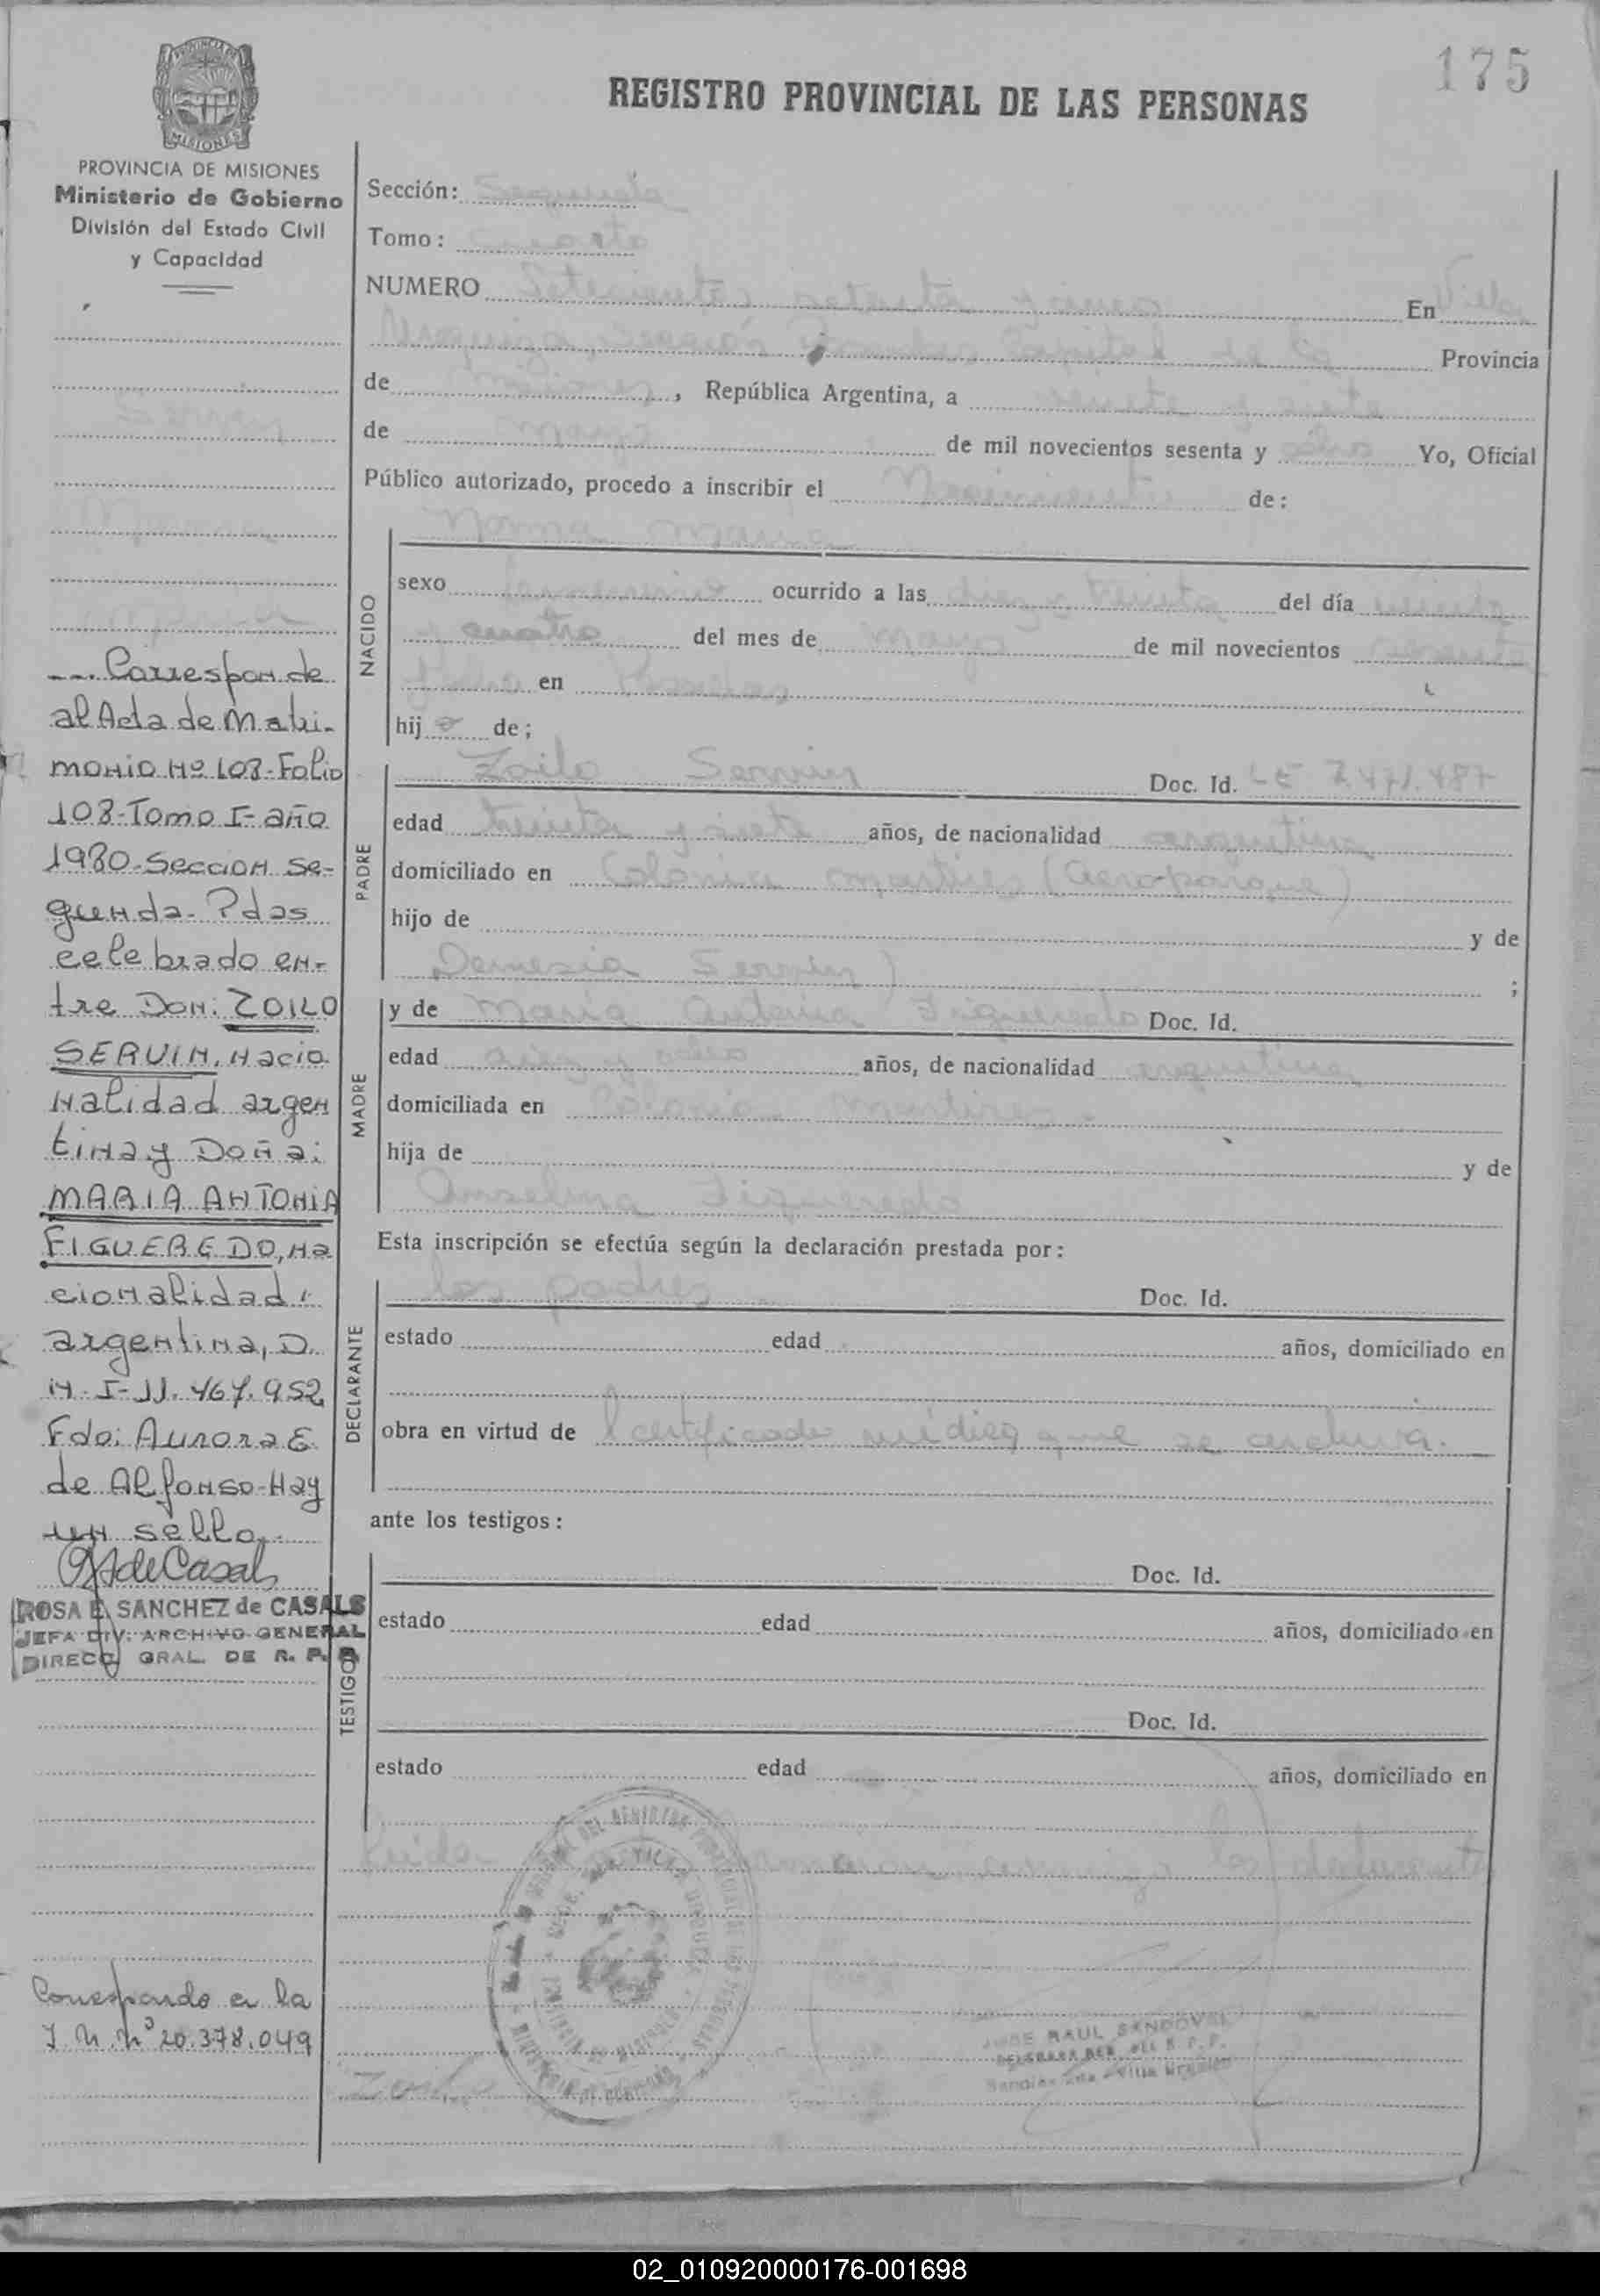 175
REGISTRO PROVINCIAL DE LAS PERSONAS
PROVINCIA DE
MISIONES
PROVINCIA DE MISIONES
Ministerio de Gobierno
División del Estado Civil
y Capacidad
Servin
Norma
... Corresponde
al Acta de Matri-
monio Nº 108-Folio
108-Tomo I-año
1980-Seccion Se-
gunda-Pdas
celebrado en-
tre Don: ZOILO
SERVIN, nacio
nalidad argen
tina y Doña:
MARIA ANTONIA
FIGUEREDO, na
cionalidad
argentina, D.
N-I-11.467.952
Fdo: Aurora E
de Alfonso-Hay
un sello.
ROSA E. SANCHEZ de CASALS
JEFA DIV. ARCHIVO GENERAL
DIREC. GRAL. DE R. P. P.
Corresponde a la
I.N. Nº 20.378.049
Sección: Segunda
Tomo: cuarto
NUMERO Setecientos setenta y cinco En Villa
Urquiza, Sección Posadas Capital de la Provincia
de Misiones, República Argentina, a veinte y siete
de mayo de mil novecientos sesenta y dos Yo, Oficial
Público autorizado, procedo a inscribir el Nacimiento de:
NACIDO
Norma
sexo femenino ocurrido a las diez y treinta del día veinte
y cuatro del mes de mayo de mil novecientos sesenta
en Posadas
hija de;
PADRE
Zoilo Servin Doc. Id. LE 7.471.487
edad treinta y siete años, de nacionalidad argentina
domiciliado en Colonia Martires (Aeroparque)
hijo de y de
Demesia Servin ;
MADRE
y de Maria Antonia Figueredo Doc. Id.
edad diez y ocho años, de nacionalidad argentina
domiciliada en Colonia Martires
hija de y de
Anselma Figueredo
Esta inscripción se efectúa según la declaración prestada por:
DECLARANTE
los padres Doc. Id.
estado edad años, domiciliado en
obra en virtud de certificado médico que se archiva.
ante los testigos:
TESTIGOS
Doc. Id.
estado edad años, domiciliado en
Doc. Id.
estado edad años, domiciliado en
Leida conmigo los declarantes
JOSE RAUL SANDOVAL
02_010920000176-001698